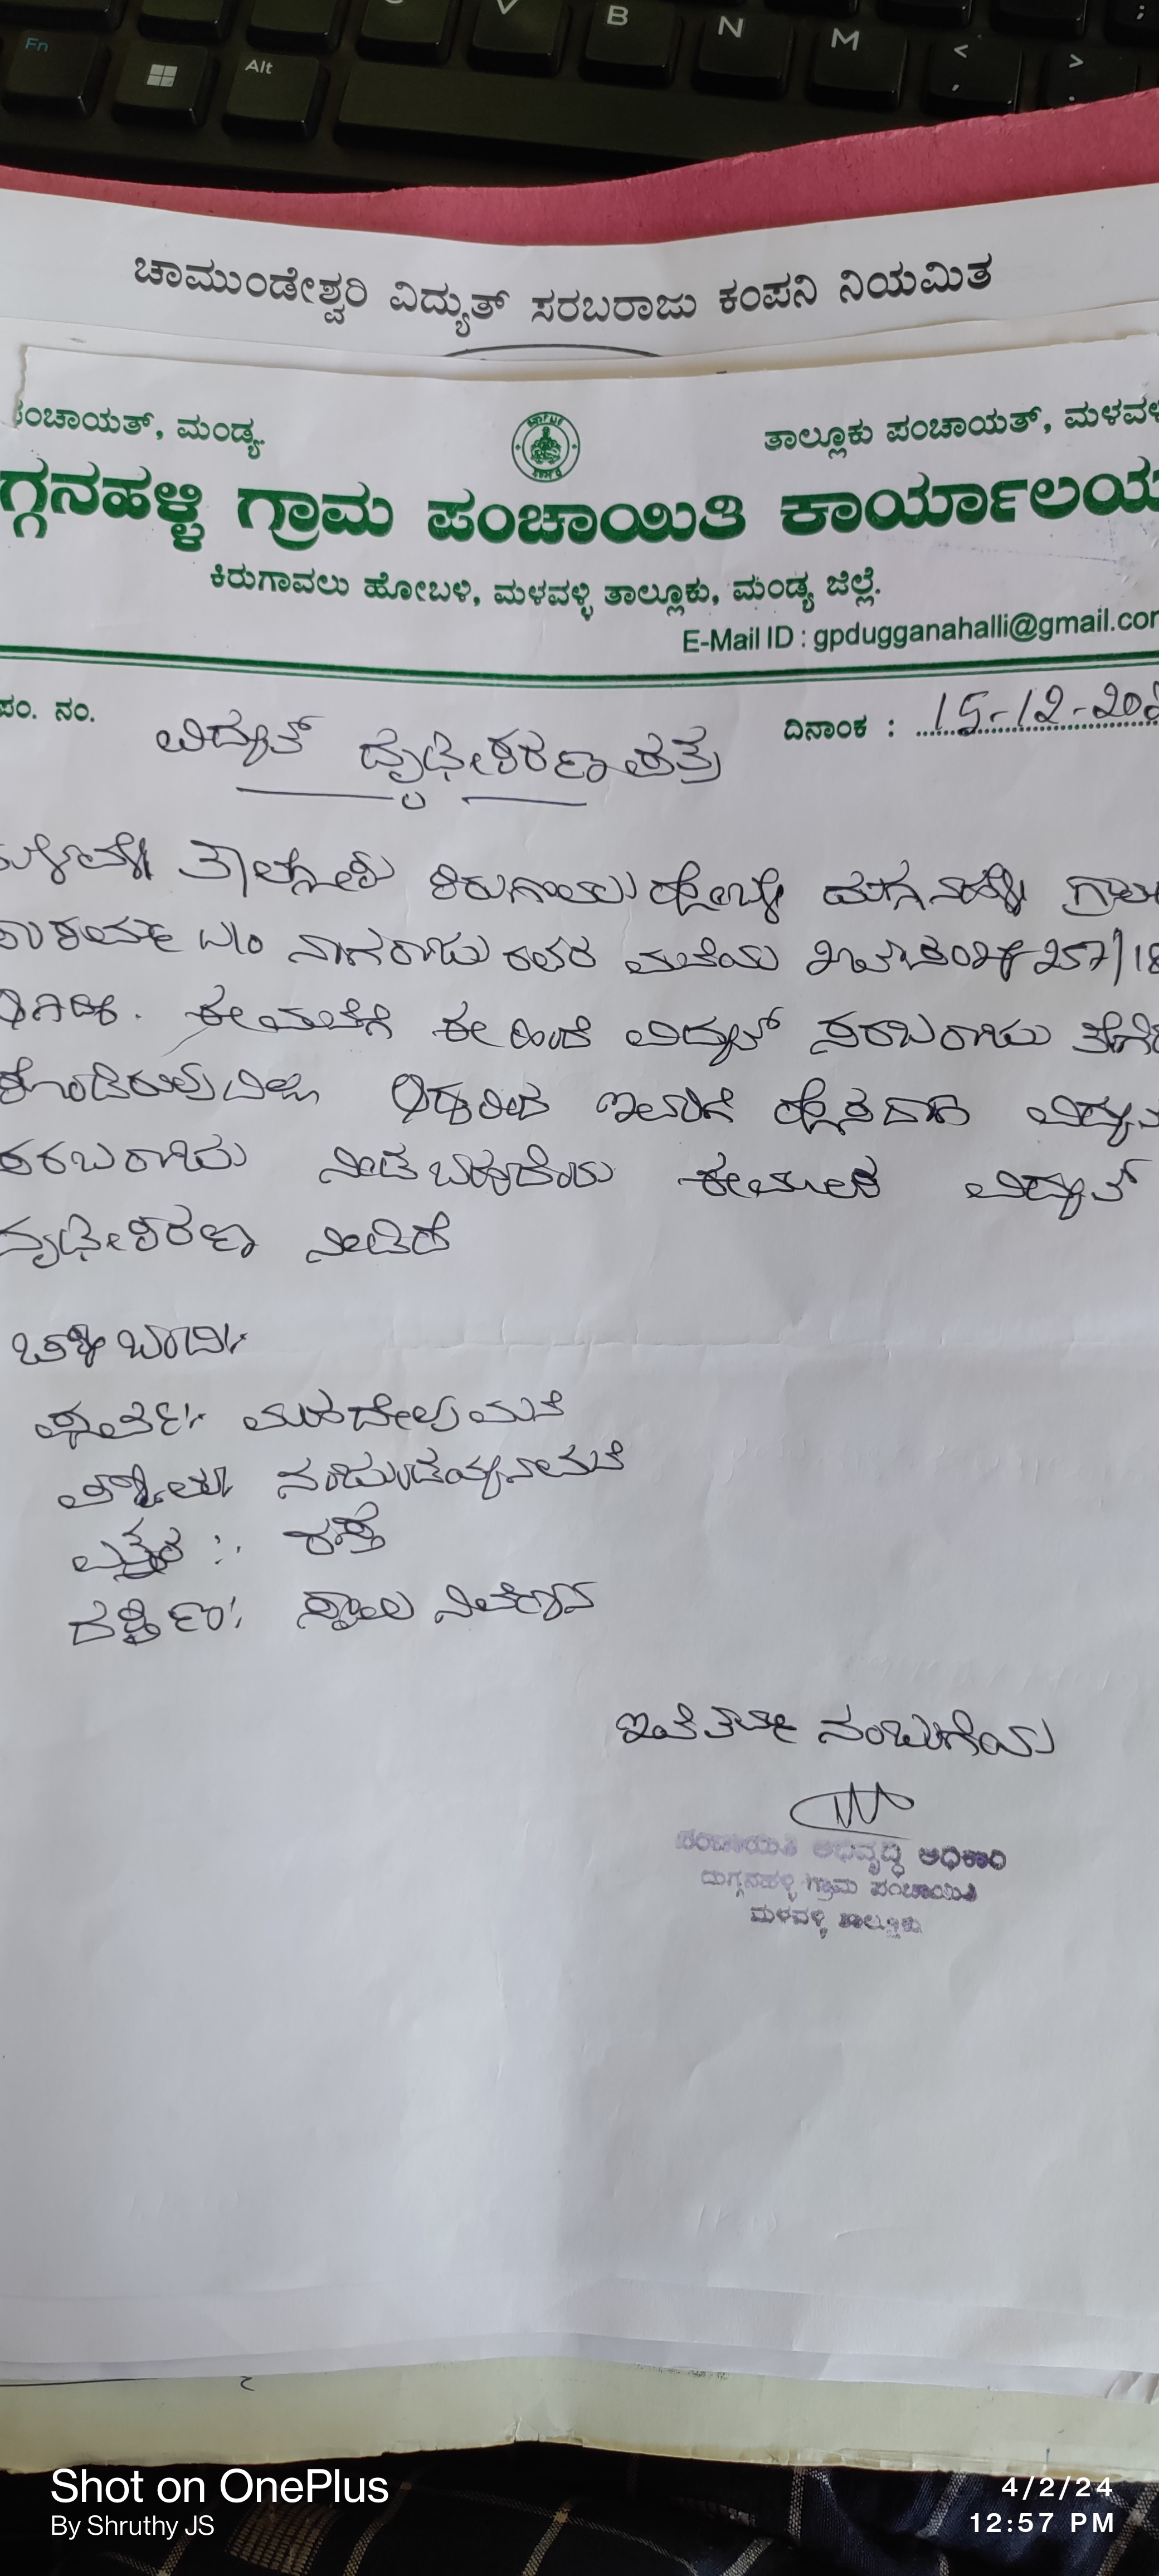 Fn
Alt
V
B
N
M
<
,
>
.
;
ಚಾಮುಂಡೇಶ್ವರಿ ವಿದ್ಯುತ್ ಸರಬರಾಜು ಕಂಪನಿ ನಿಯಮಿತ
ಪಂಚಾಯತ್, ಮಂಡ್ಯ.
ತಾಲ್ಲೂಕು ಪಂಚಾಯತ್, ಮಳವಳ
ಗ್ಗನಹಳ್ಳಿ ಗ್ರಾಮ ಪಂಚಾಯಿತಿ ಕಾರ್ಯಾಲಯ
ಕಿರುಗಾವಲು ಹೋಬಳಿ, ಮಳವಳ್ಳಿ ತಾಲ್ಲೂಕು, ಮಂಡ್ಯ ಜಿಲ್ಲೆ.
E-Mail ID : gpdugganahalli@gmail.com
ಪಂ. ನಂ.
ದಿನಾಂಕ : 15-12-202
ವಿದ್ಯುತ್ ದೃಢೀಕರಣ ಪತ್ರ
ಕಿರುಗಾವಲು ಹೋಬಳಿ ದುಗ್ಗನಹಳ್ಳಿ ಗ್ರಾಮ
ನಾಗರಾಜು ರವರ ಮನೆಯ 257/18
ಈ ಮನೆಗೆ ಈ ಹಿಂದೆ ವಿದ್ಯುತ್ ಸರಬರಾಜು
ಕೊಂಡಿರುವುದಿಲ್ಲ ಆದ್ದರಿಂದ ವಿದ್ಯುತ್
ಸರಬರಾಜು ನೀಡಬಹುದೆಂದು ಈ ಮೂಲಕ ವಿದ್ಯುತ್
ದೃಢೀಕರಣ ನೀಡಿದೆ
ಚಕ್ಕುಬಂದಿ
ಪೂರ್ವ :- ಮಹದೇವು ಮನೆ
ಪಶ್ಚಿಮ ನಂಜುಂಡಯ್ಯನ ಮನೆ
ಉತ್ತರ :- ರಸ್ತೆ
ದಕ್ಷಿಣ :- ಸ್ವಾಮಿ ನಿವೇಶನ
ಇಂತಿ ತಮ್ಮ ನಂಬುಗೆಯ
ಪಂಚಾಯಿತಿ ಅಭಿವೃದ್ಧಿ ಅಧಿಕಾರಿ
ದುಗ್ಗನಹಳ್ಳಿ ಗ್ರಾಮ ಪಂಚಾಯಿತಿ
ಮಳವಳ್ಳಿ ತಾಲ್ಲೂಕು
Shot on OnePlus
By Shruthy JS
4/2/24
12:57 PM